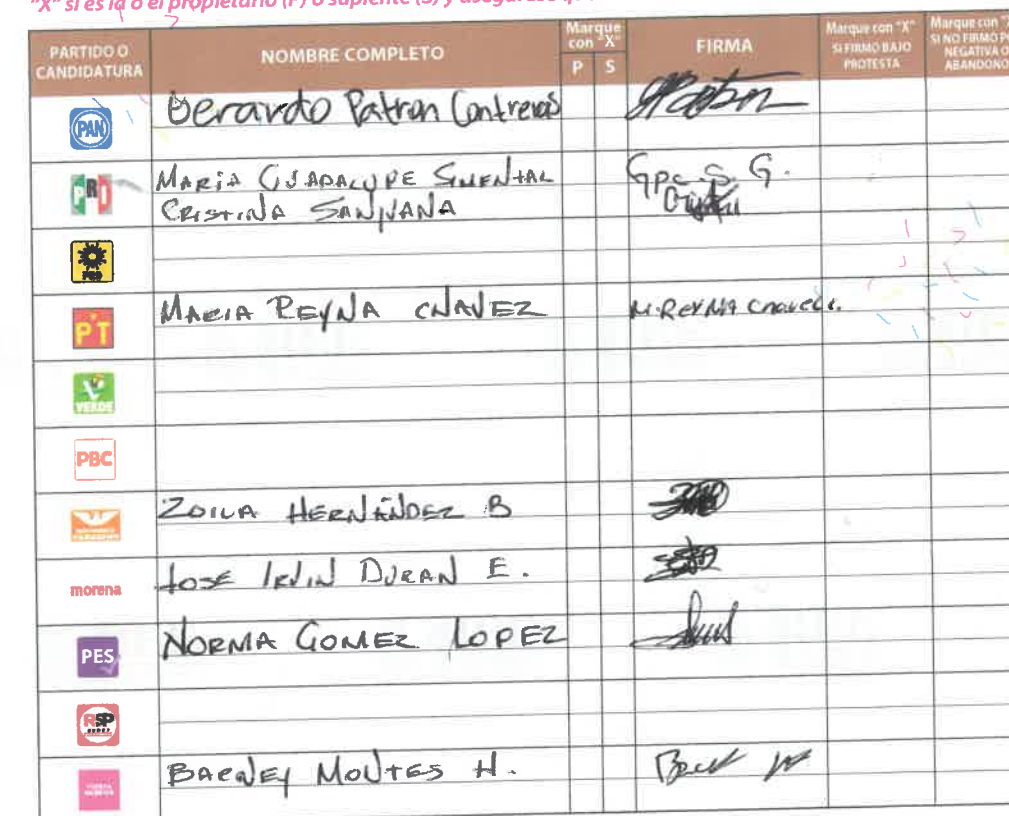 "X" si es la o el propietario (P) o suplente (S) y asegúrese
PARTIDO O CANDIDATURA
NOMBRE COMPLETO
Marque con "X"
P S
FIRMA
Marque con "X" SI FIRMÓ BAJO PROTESTA
Marque con "X" SI NO FIRMÓ NEGATIVA O ABANDONO
PAN Gerardo Patron Contreras
PRI MARIA GUADALUPE SIMENTAL Gpe. S. G.
CRISTINA SANJUANA
PRD
PT MARIA REYNA CHAVEZ M. REYNA Chavez
VERDE
PBC
ZOILA HERNÁNDEZ B
morena JOSE IRVIN DURAN E.
PES NORMA GOMEZ LOPEZ
RSP
BARNEY MONTES H.